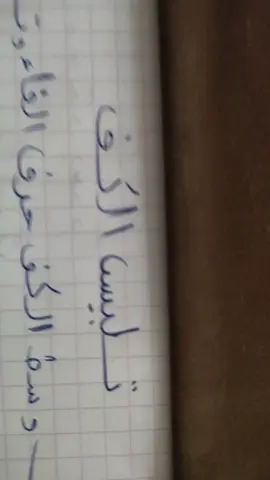 تلبيس الكف
وسط الكف حرف الفاء